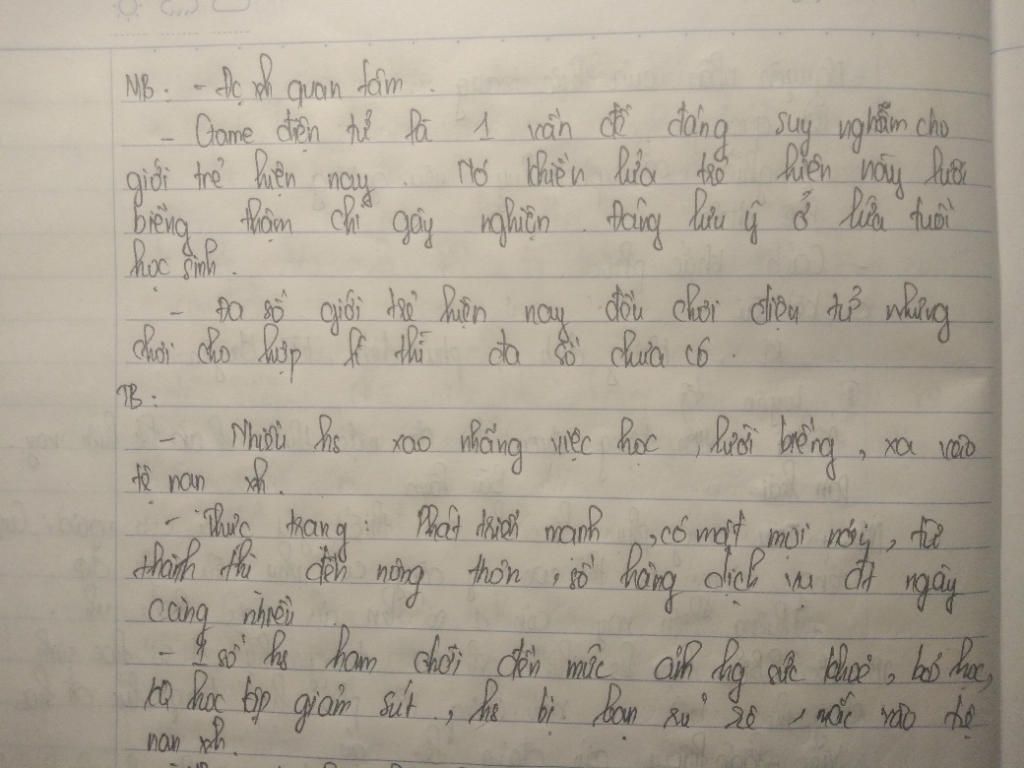 MB: - Đc xh quan tâm.
- Game điện tử là 1 vấn đề đáng suy nghẫm cho
giới trẻ hiện nay. Nó khiến lứa trẻ hiện nay lười
biếng thậm chí gây nghiện. Đáng lưu ý ở lứa tuổi
học sinh.
- Đa số giới trẻ hiện nay đều chơi điện tử nhưng
chơi cho hợp lí thì đa số chưa có.
TB:
- Nhiều hs xao nhãng việc học, lười biếng, xa vào
tệ nạn xh.
- Thực trạng: Phát triển mạnh, có mặt mọi nơi, từ
thành thị đến nông thôn, số hàng dịch vụ đt ngày
càng nhiều
- 1 số hs ham chơi đến mức ảnh hg sức khoẻ, bỏ học,
kq học tập giảm sút, hs bị bạn xấu rủ rê, mắc vào tệ
nạn xh.